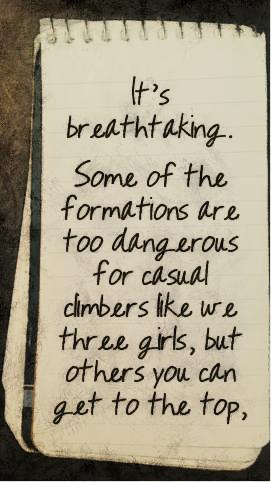 It's
breathtaking.
Some of the
formations are
too dangerous
for casual
climbers like we
three girls, but
others you can
get to the top,